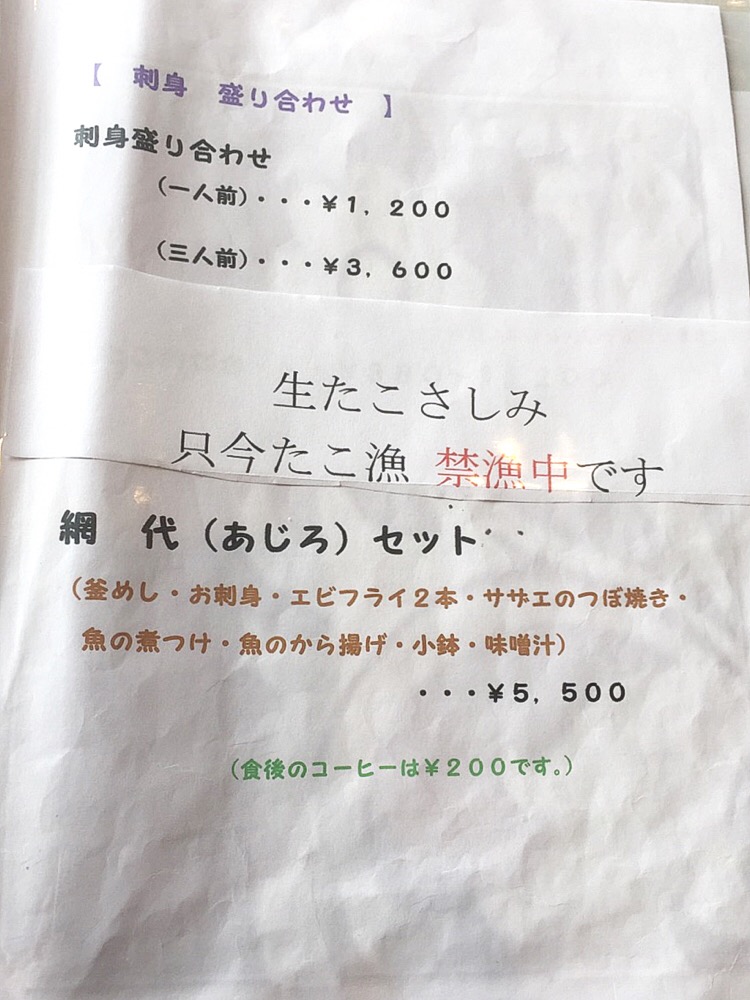 【　刺身　盛り合わせ　】
刺身盛り合わせ
（一人前）・・・¥１，２００
（三人前）・・・¥３，６００
生たこさしみ
只今たこ漁 禁漁中です
網　代（あじろ）セット
（釜めし・お刺身・エビフライ２本・サザエのつぼ焼き・
魚の煮つけ・魚のから揚げ・小鉢・味噌汁）
・・・¥５，５００
（食後のコーヒーは¥２００です。）